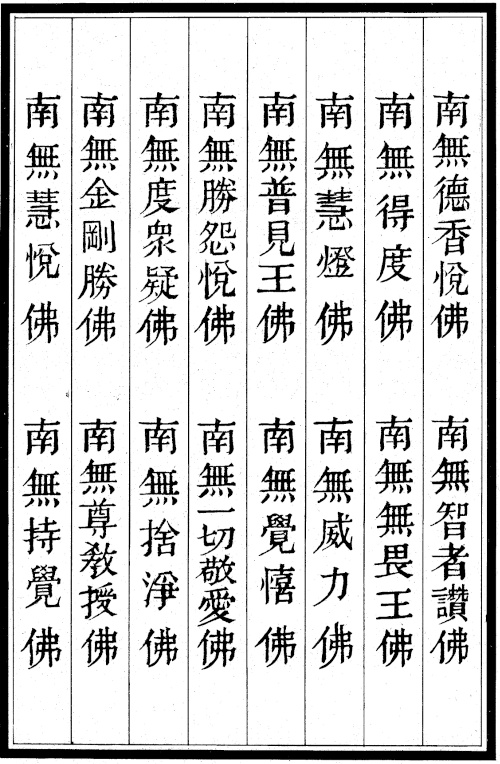 南無德香悅佛　南無智者讚佛
南無得度佛　南無無畏王佛
南無慧燈佛　南無威力佛
南無普見王佛　南無覺憘佛
南無勝怨悅佛　南無一切敬愛佛
南無度衆疑佛　南無捨淨佛
南無金剛勝佛　南無尊教授佛
南無慧悅佛　南無持覺佛